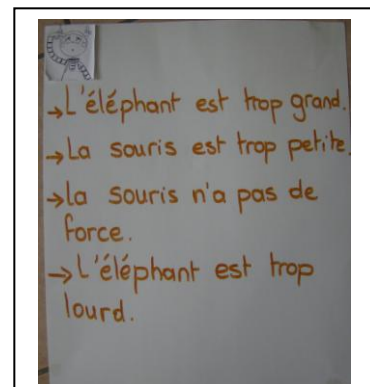 →L'éléphant est trop grand.
→La souris est trop petite.
→La souris n'a pas de
force.
→L'éléphant est trop
lourd.